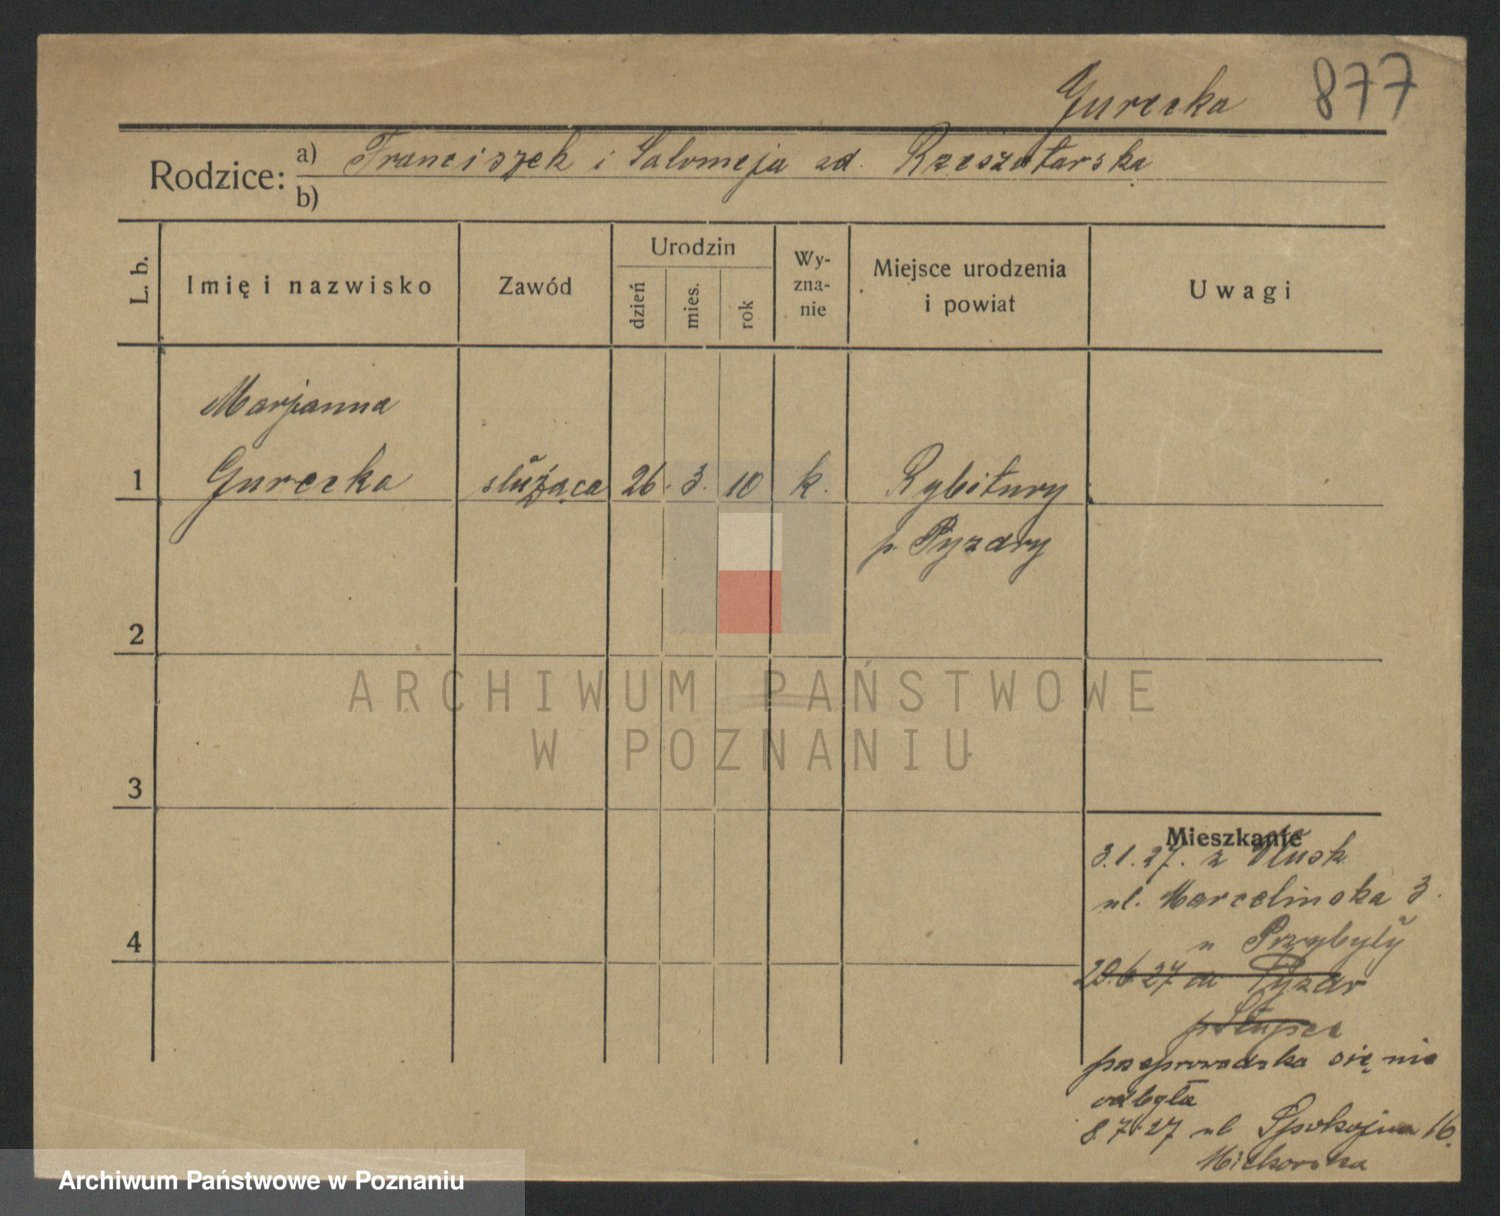 Gurecka 877
Rodzice: a) Franciszek i Salomeja zd. Rzeszotarska
b)
L. b.
Imię i nazwisko
Zawód
Urodzin
dzień
mies.
rok
Wy-
zna-
nie
Miejsce urodzenia
i powiat
Uwagi
Marjanna
1 Gurecka służąca 26. 3. 10 k. Rybitury
p Pyzdry
2
3
4
Mieszkanie
3.1.27. z
ul. Marcelinska 3.
u Przybyły
29.6.27 do Pyzdr
p Słupca
przeprowadzka się nie
odbyła
8.7.27 ul Spokojna 16.
ARCHIWUM PAŃSTWOWE
W POZNANIU
Archiwum Państwowe w Poznaniu